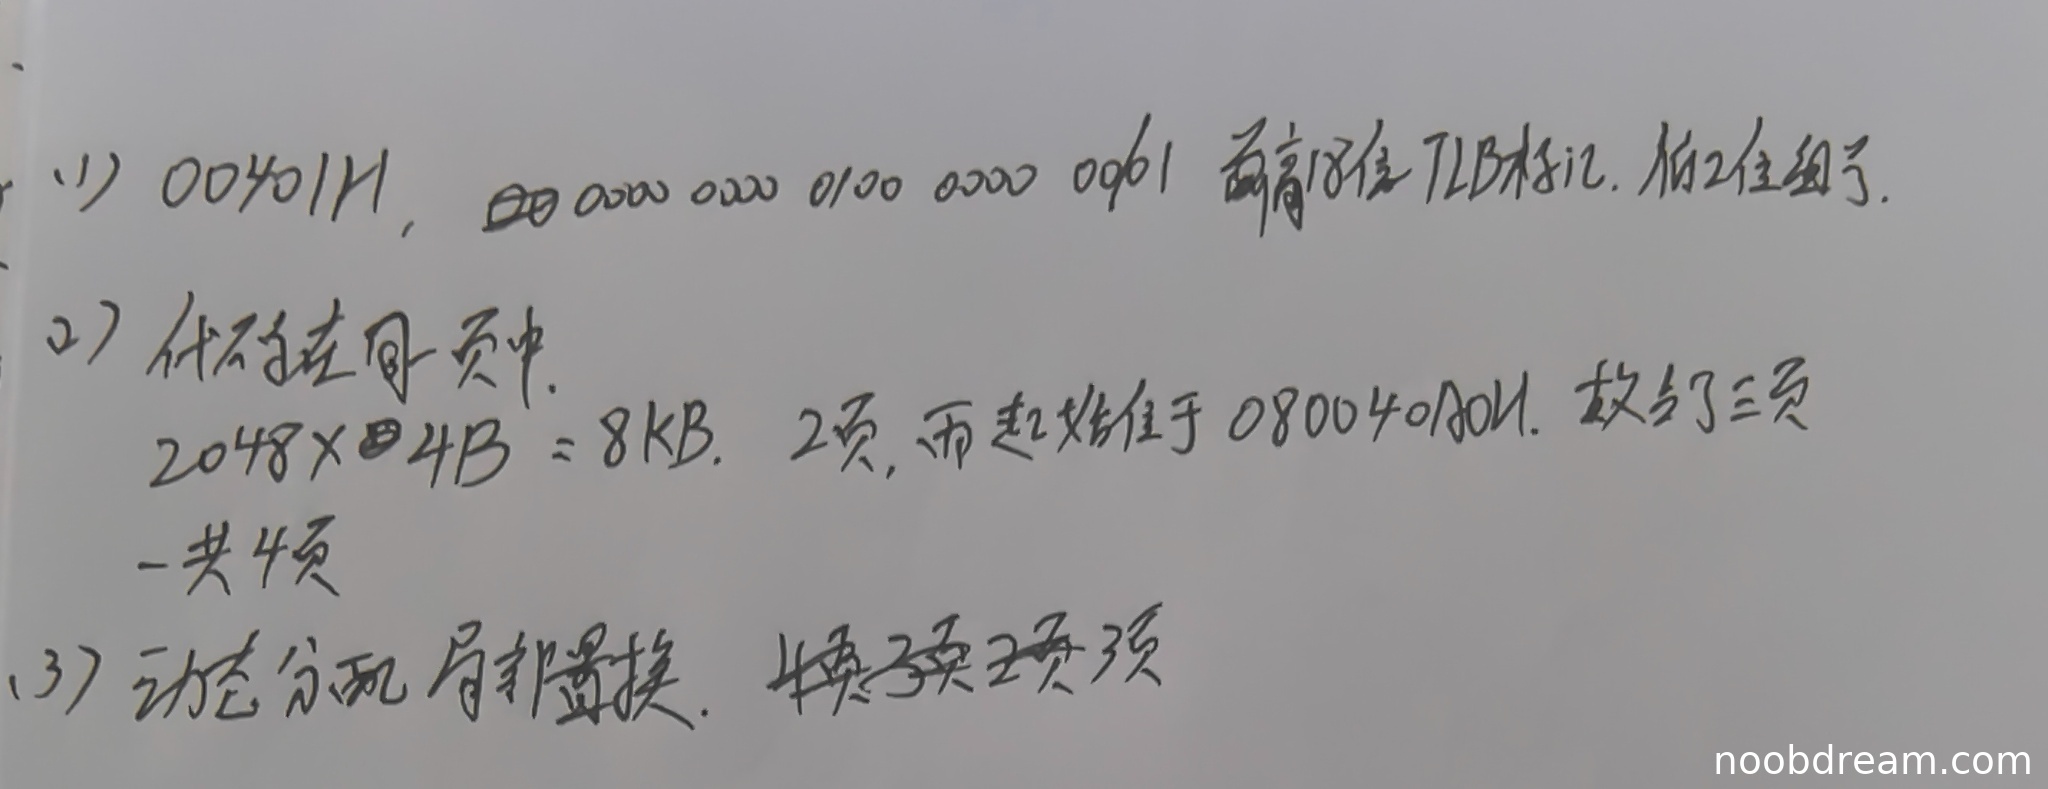 (1) 00401H, 0000 0000 0100 0000 0001 高18位TLB标记. 低2位组号.
(2) 代码在同一页中.
2048×4B = 8KB. 2页, 而起始位于080040A0H. 故占了三页
一共4页
(3) 动态分配 局部置换. 3页
noobdream.com